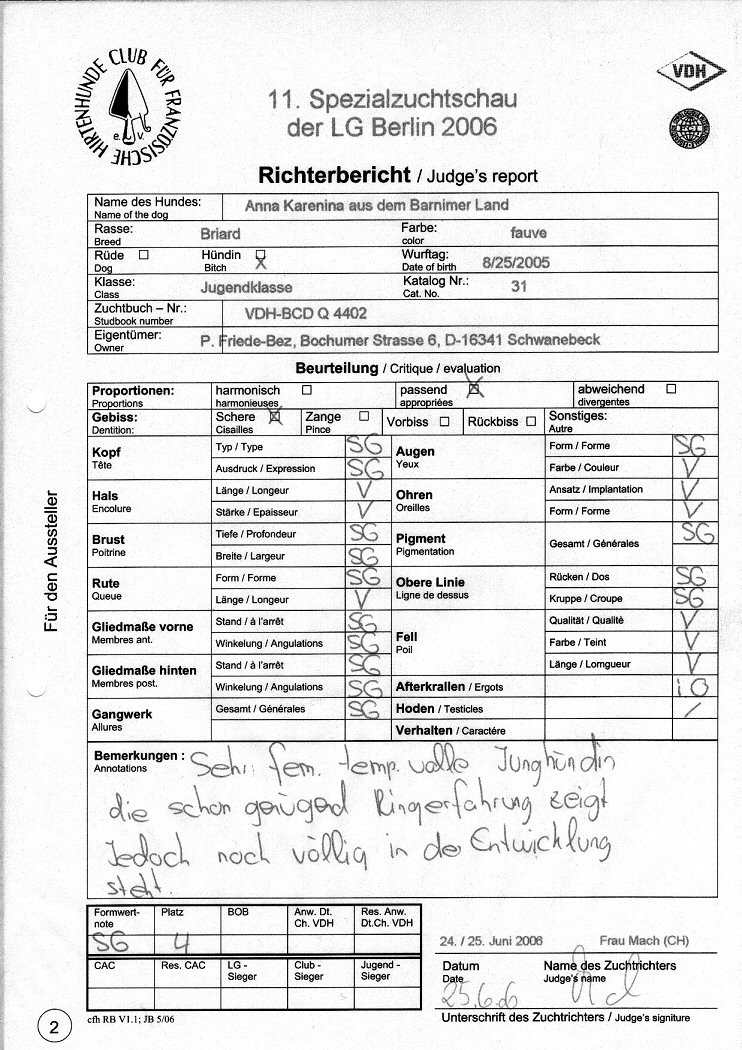 CLUB FÜR FRANZÖSISCHE HIRTENHUNDE e. V.
VDH
11. Spezialzuchtschau
der LG Berlin 2006
Richterbericht / Judge's report
Name des Hundes: Anna Karenina aus dem Barnimer Land
Name of the dog
Rasse: Briard Farbe: fauve
Breed color
Rüde ☐ Hündin ☒ Wurftag: 8/25/2005
Dog Bitch Date of birth
Klasse: Jugendklasse Katalog Nr.: 31
Class Cat. No.
Zuchtbuch – Nr.: VDH-BCD Q 4402
Studbook number
Eigentümer: P. Friede-Bez, Bochumer Strasse 6, D-16341 Schwanebeck
Owner
Beurteilung / Critique / evaluation
Proportionen: harmonisch ☐ passend ☒ abweichend ☐
Proportions harmonieuses appropriées divergentes
Gebiss: Schere ☒ Zange ☐ Vorbiss ☐ Rückbiss ☐ Sonstiges:
Dentition: Cisailles Pince Autre
Kopf Typ / Type SG Augen Form / Forme SG
Tête Ausdruck / Expression SG Yeux Farbe / Couleur V
Hals Länge / Longeur V Ohren Ansatz / Implantation V
Encolure Stärke / Epaisseur V Oreilles Form / Forme V
Brust Tiefe / Profondeur SG Pigment Gesamt / Générales SG
Poitrine Breite / Largeur SG Pigmentation
Rute Form / Forme SG Obere Linie Rücken / Dos SG
Queue Länge / Longeur V Ligne de dessus Kruppe / Croupe SG
Gliedmaße vorne Stand / à l'arrêt SG Fell Qualität / Qualité V
Membres ant. Winkelung / Angulations SG Poil Farbe / Teint V
Gliedmaße hinten Stand / à l'arrêt SG Länge / Lomgueur V
Membres post. Winkelung / Angulations SG Afterkrallen / Ergots i O
Gangwerk Gesamt / Générales SG Hoden / Testicles /
Allures Verhalten / Caractére
Bemerkungen : Sehr fem. temp. volle Junghündin
Annotations
die schon genügend Ringerfahrung zeigt
Jedoch noch völlig in der Entwicklung
steht.
Formwert-note Platz BOB Anw. Dt. Ch. VDH Res. Anw. Dt.Ch. VDH
SG 4
CAC Res. CAC LG - Sieger Club - Sieger Jugend - Sieger
24. / 25. Juni 2006 Frau Mach (CH)
Datum Name des Zuchtrichters
Date Judge's name
25.6.06
Unterschrift des Zuchtrichters / Judge's signiture
cfh RB V1.1; JB 5/06
2
Für den Aussteller